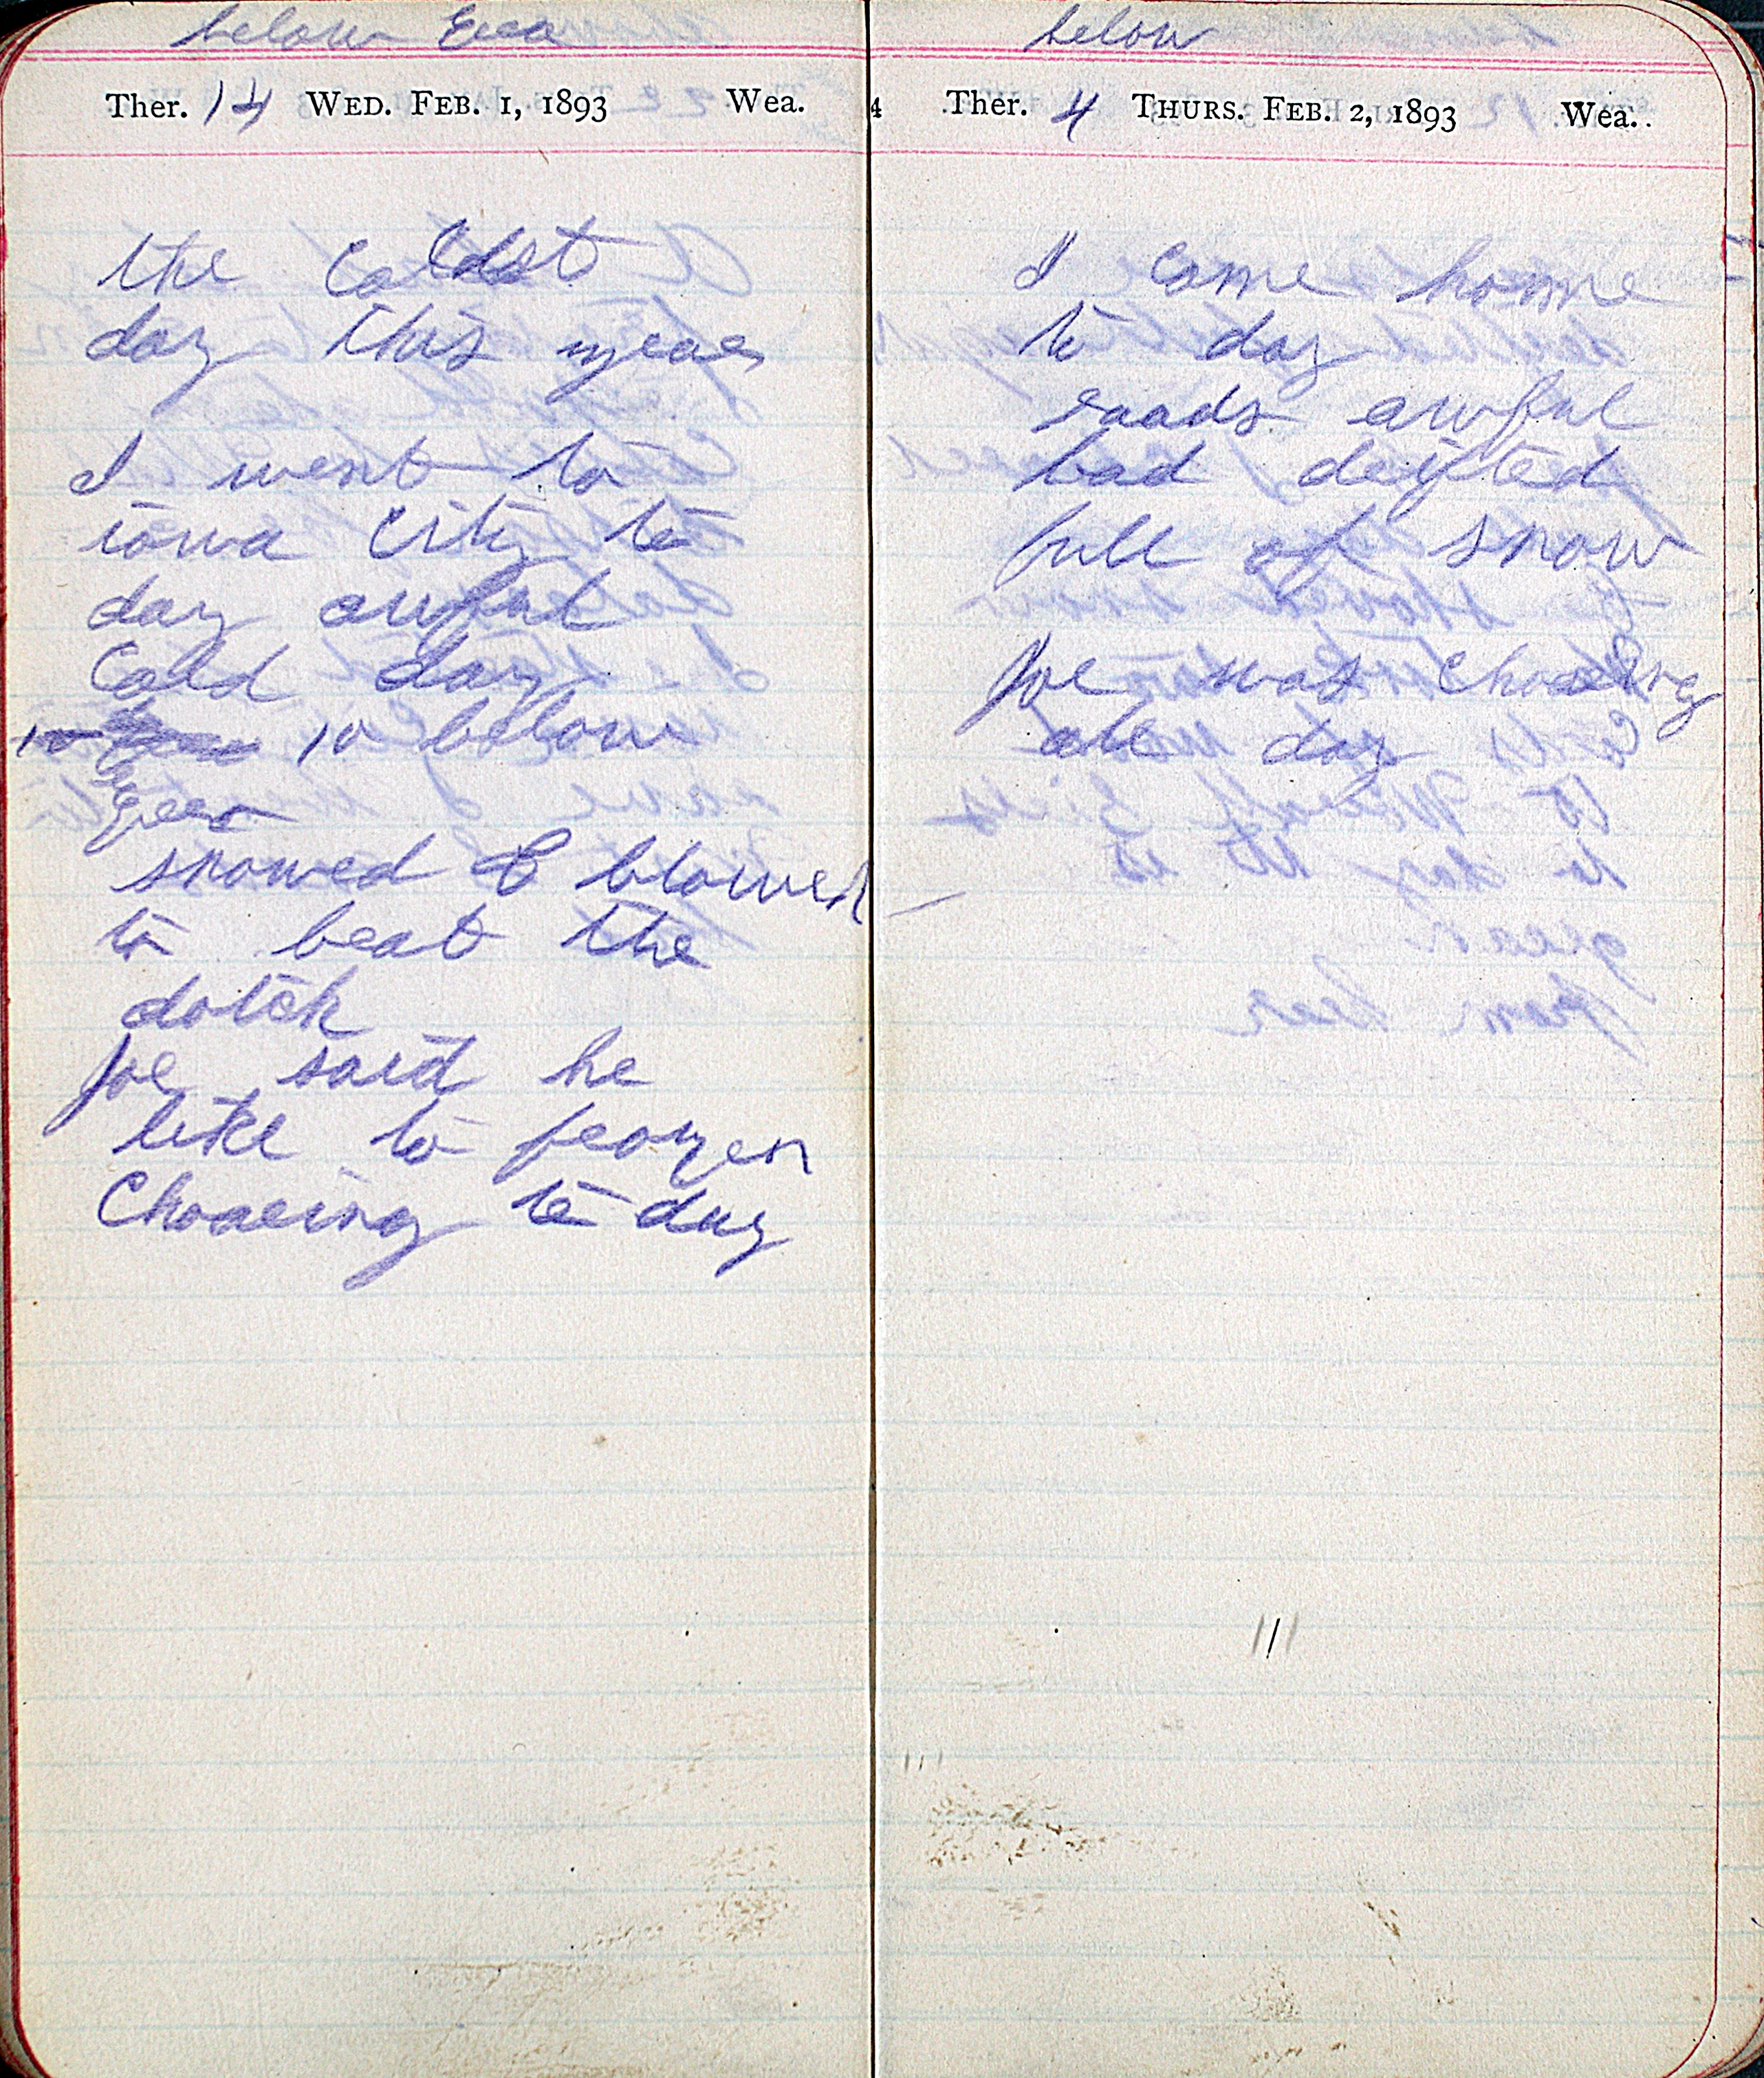 below Zero
Ther. 14 WED. FEB. 1, 1893 Wea.
the Caldst
day this year
I went to
iowa City to
day awful
Cold day
10 10 below
Zero
snowed & blowed
to beat the
dotch
Joe said he
like to frozen
Choreing to day
below
4 Ther. 4 THURS. FEB. 2, 1893 Wea.
I Come home
to day
roads awful
bad drifted
full of snow
Joe was Choreing
all day